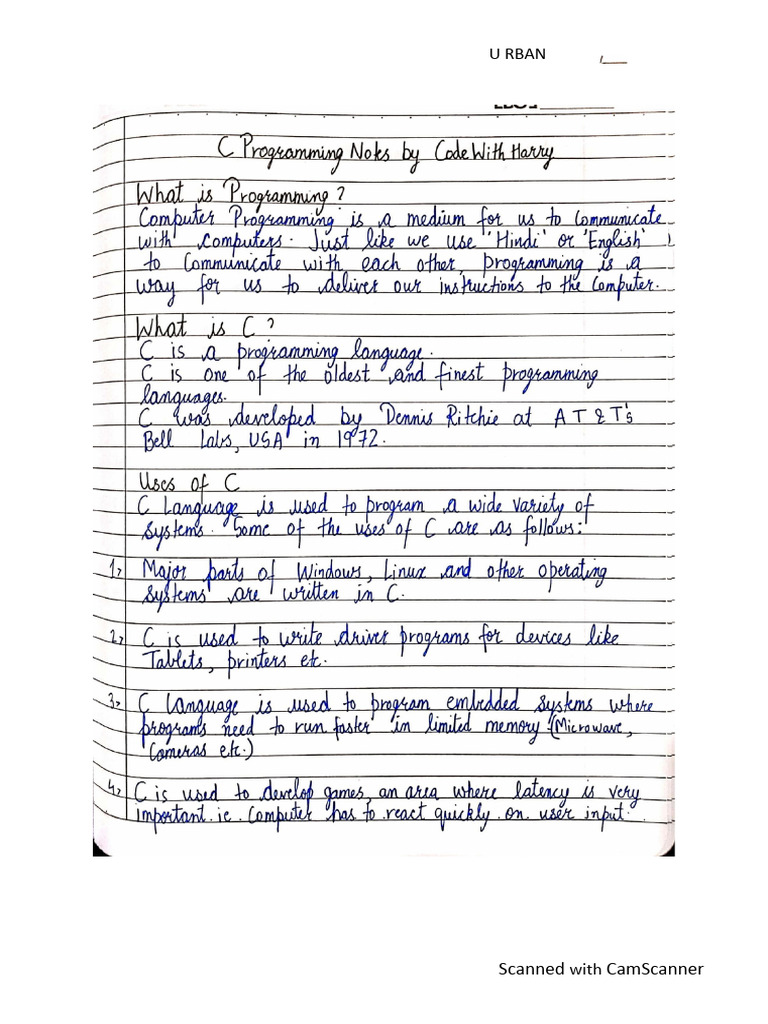 U RBAN
C Programming Notes by CodeWithHarry
What is Programming?
Computer Programming is a medium for us to communicate
with computers. Just like we use 'Hindi' or 'English'
to communicate with each other, programming is a
way for us to deliver our instructions to the computer.
What is C?
C is a programming language.
C is one of the oldest and finest programming
languages.
C was developed by Dennis Ritchie at AT&T's
Bell Labs, USA in 1972.
Uses of C
C Language is used to program a wide variety of
systems. Some of the uses of C are as follows:
1, Major parts of Windows, Linux and other operating
systems are written in C.
2, C is used to write driver programs for devices like
Tablets, printers etc.
3, C language is used to program embedded systems where
programs need to run faster in limited memory (Microwave,
Cameras etc.)
4, C is used to develop games, an area where latency is very
important. ie. Computer has to react quickly on user input.
Scanned with CamScanner